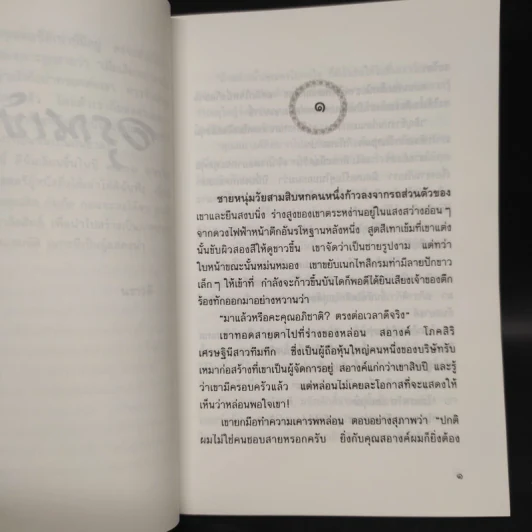 ๑
ชายหนุ่มวัยสามสิบหกคนหนึ่งก้าวลงจากรถส่วนตัวของ
เขาและยืนสงบนิ่ง ร่างสูงของเขาตระหง่านอยู่ในแสงสว่างอ่อน ๆ
จากดวงไฟฟ้าหน้าตึกอันรโหฐานหลังหนึ่ง สูตสีเทาเข้มที่เขาแต่ง
นั้นขับผิวสองสีให้ดูขาวขึ้น เขาจัดว่าเป็นชายรูปงาม แต่ทว่า
ใบหน้าขณะนั้นหม่นหมอง เขาขยับเนกไทสีกรมท่ามีลายปักขาว
เล็ก ๆ ให้เข้าที่ กำลังจะก้าวขึ้นบันไดก็พอดีได้ยินเสียงเจ้าของตึก
ร้องทักออกมาอย่างหวานว่า
“มาแล้วหรือคะคุณอภิชาติ? ตรงต่อเวลาดีจริง”
เขาทอดสายตาไปที่ร่างของหล่อน สอางค์ โภคสิริ
เศรษฐินีสาวทึมทึก ซึ่งเป็นผู้ถือหุ้นใหญ่คนหนึ่งของบริษัทรับ
เหมาก่อสร้างที่เขาเป็นผู้จัดการอยู่ สอางค์แก่กว่าเขาสิบปี และรู้
ว่าเขามีครอบครัวแล้ว แต่หล่อนไม่เคยละโอกาสที่จะแสดงให้
เห็นว่าหล่อนพอใจเขา!
เขายกมือทำความเคารพหล่อน ตอบอย่างสุภาพว่า “ปกติ
ผมไม่ใช่คนชอบสายหรอกครับ ยิ่งกับคุณสอางค์ผมก็ยิ่งต้อง
๑